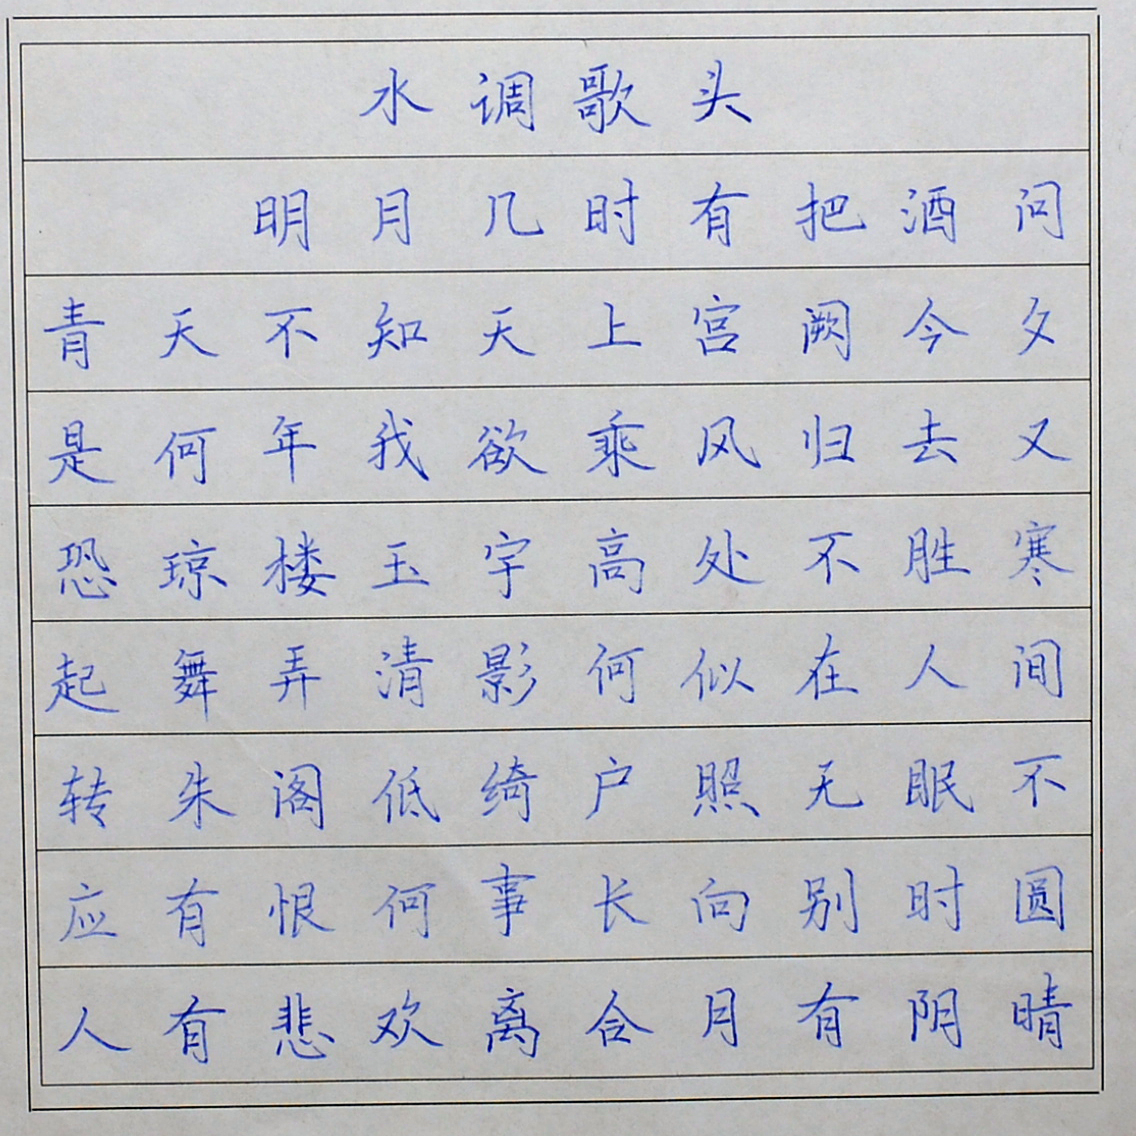 水调歌头
明月几时有把酒问
青天不知天上宫阙今夕
是何年我欲乘风归去又
恐琼楼玉宇高处不胜寒
起舞弄清影何似在人间
转朱阁低绮户照无眠不
应有恨何事长向别时圆
人有悲欢离合月有阴晴